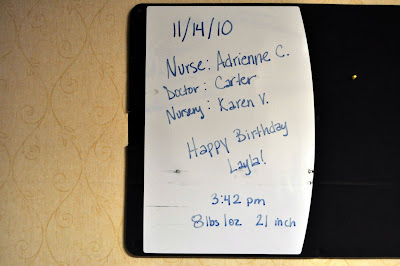 11/14/10
Nurse: Adrienne C.
Doctor: Carter
Nursery: Karen V.
Happy Birthday
Layla!
3:42 pm
8lbs 1oz 21 inch